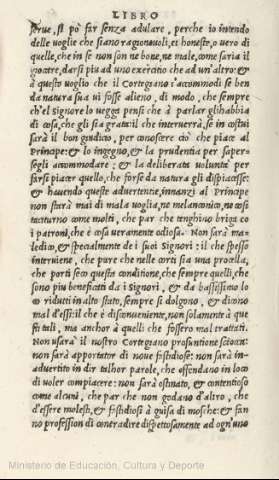 LIBRO
serue, si po far senza adulare, perche io intendo
delle uoglie che siano ragioneuoli, et honeste, o uero di
quelle, che in se non son ne bone, ne male, come saria il
giocare, darsi piu ad uno exercitio che ad un'altro: &
à questo uoglio che il Cortegiano s'accommodi se ben
da natura sua ui fosse alieno, di modo, che sempre
ch'el Signore lo uegga pensi che à parlar gli habbia
di cosa, che gli sia grata: il che interuerrà, se in costui
sarà il bon giudicio, per conoscere ciò che piace al
Principe: & lo ingegno, & la prudentia per saper-
segli accommodare; & la deliberata uoluntà per
farsi piacer quello, che forse da natura gli dispiacesse:
& hauendo queste aduertentie, innanzi al Principe
non starà mai di mala uoglia, ne melanconico, ne cosi
taciturno come molti, che par che tenghino briga co
i patroni, che è cosa ueramente odiosa. Non sarà ma-
ledico, & specialmente de i suoi Signori: il che spesso
interuiene, che pare che nelle corti sia una procella,
che porti seco questa conditione, che sempre quelli, che
sono piu beneficati da i Signori, & da bassissimo lo
co ridutti in alto stato, sempre si dolgono, & dicono
mal d'essi: il che è disconueniente, non solamente à que
sti tali, ma anchor à quelli che fossero mal trattati.
Non usarà il nostro Cortegiano prosuntione sciocca:
non sarà apportator di noue fastidiose: non sarà in-
aduertito in dir talhor parole, che offendano in loco
di uoler compiacere: non sarà ostinato, & contentioso
come alcuni, che par che non godano d'altro, che
d'essere molesti, & fastidiosi à guisa di mosche: & fan
no profession di contradire dispettosamente ad ogn'uno
Ministerio de Educación, Cultura y Deporte